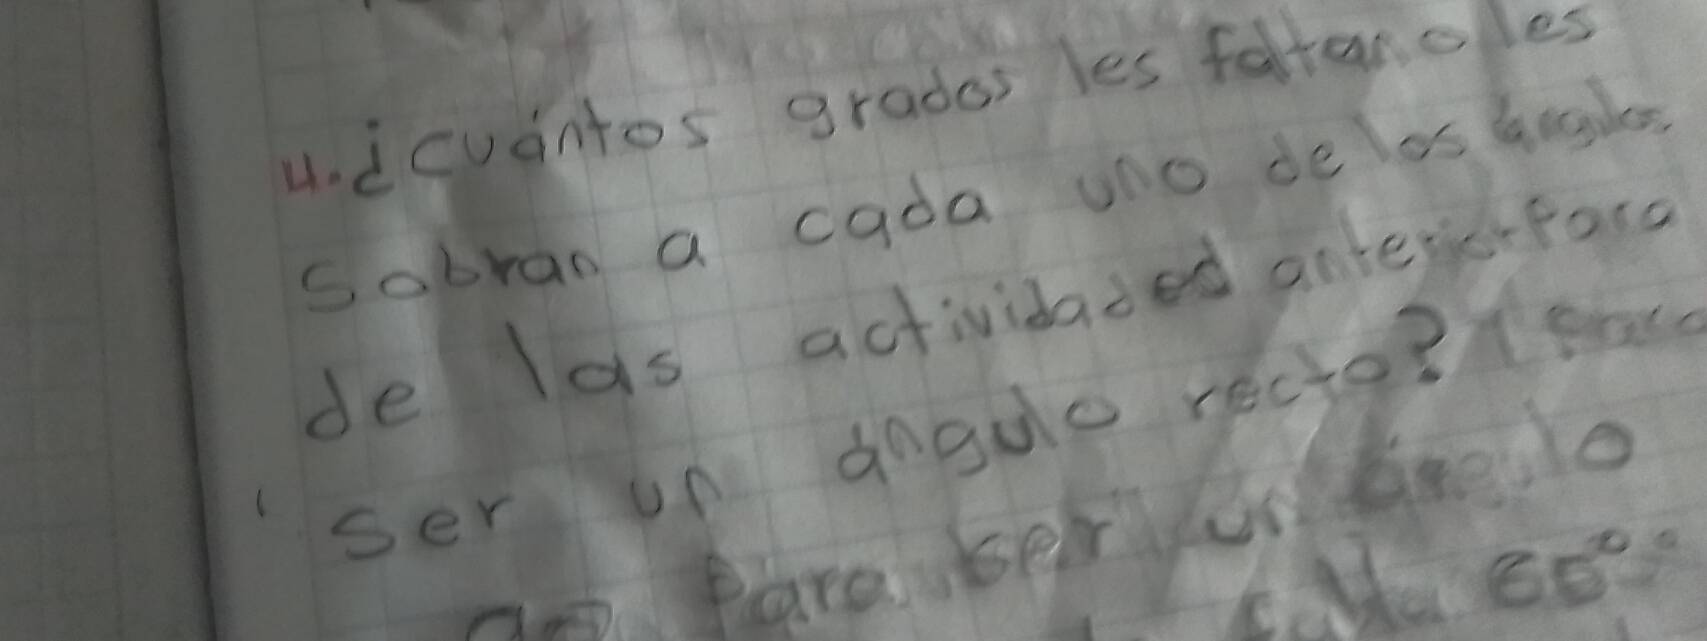 4. ¿cuántos grados les faltan o les
sobran a cada uno de los ángulos
de las actividaded anterior Para
ser un ángulo recto?
Para ser un ángulo
falta